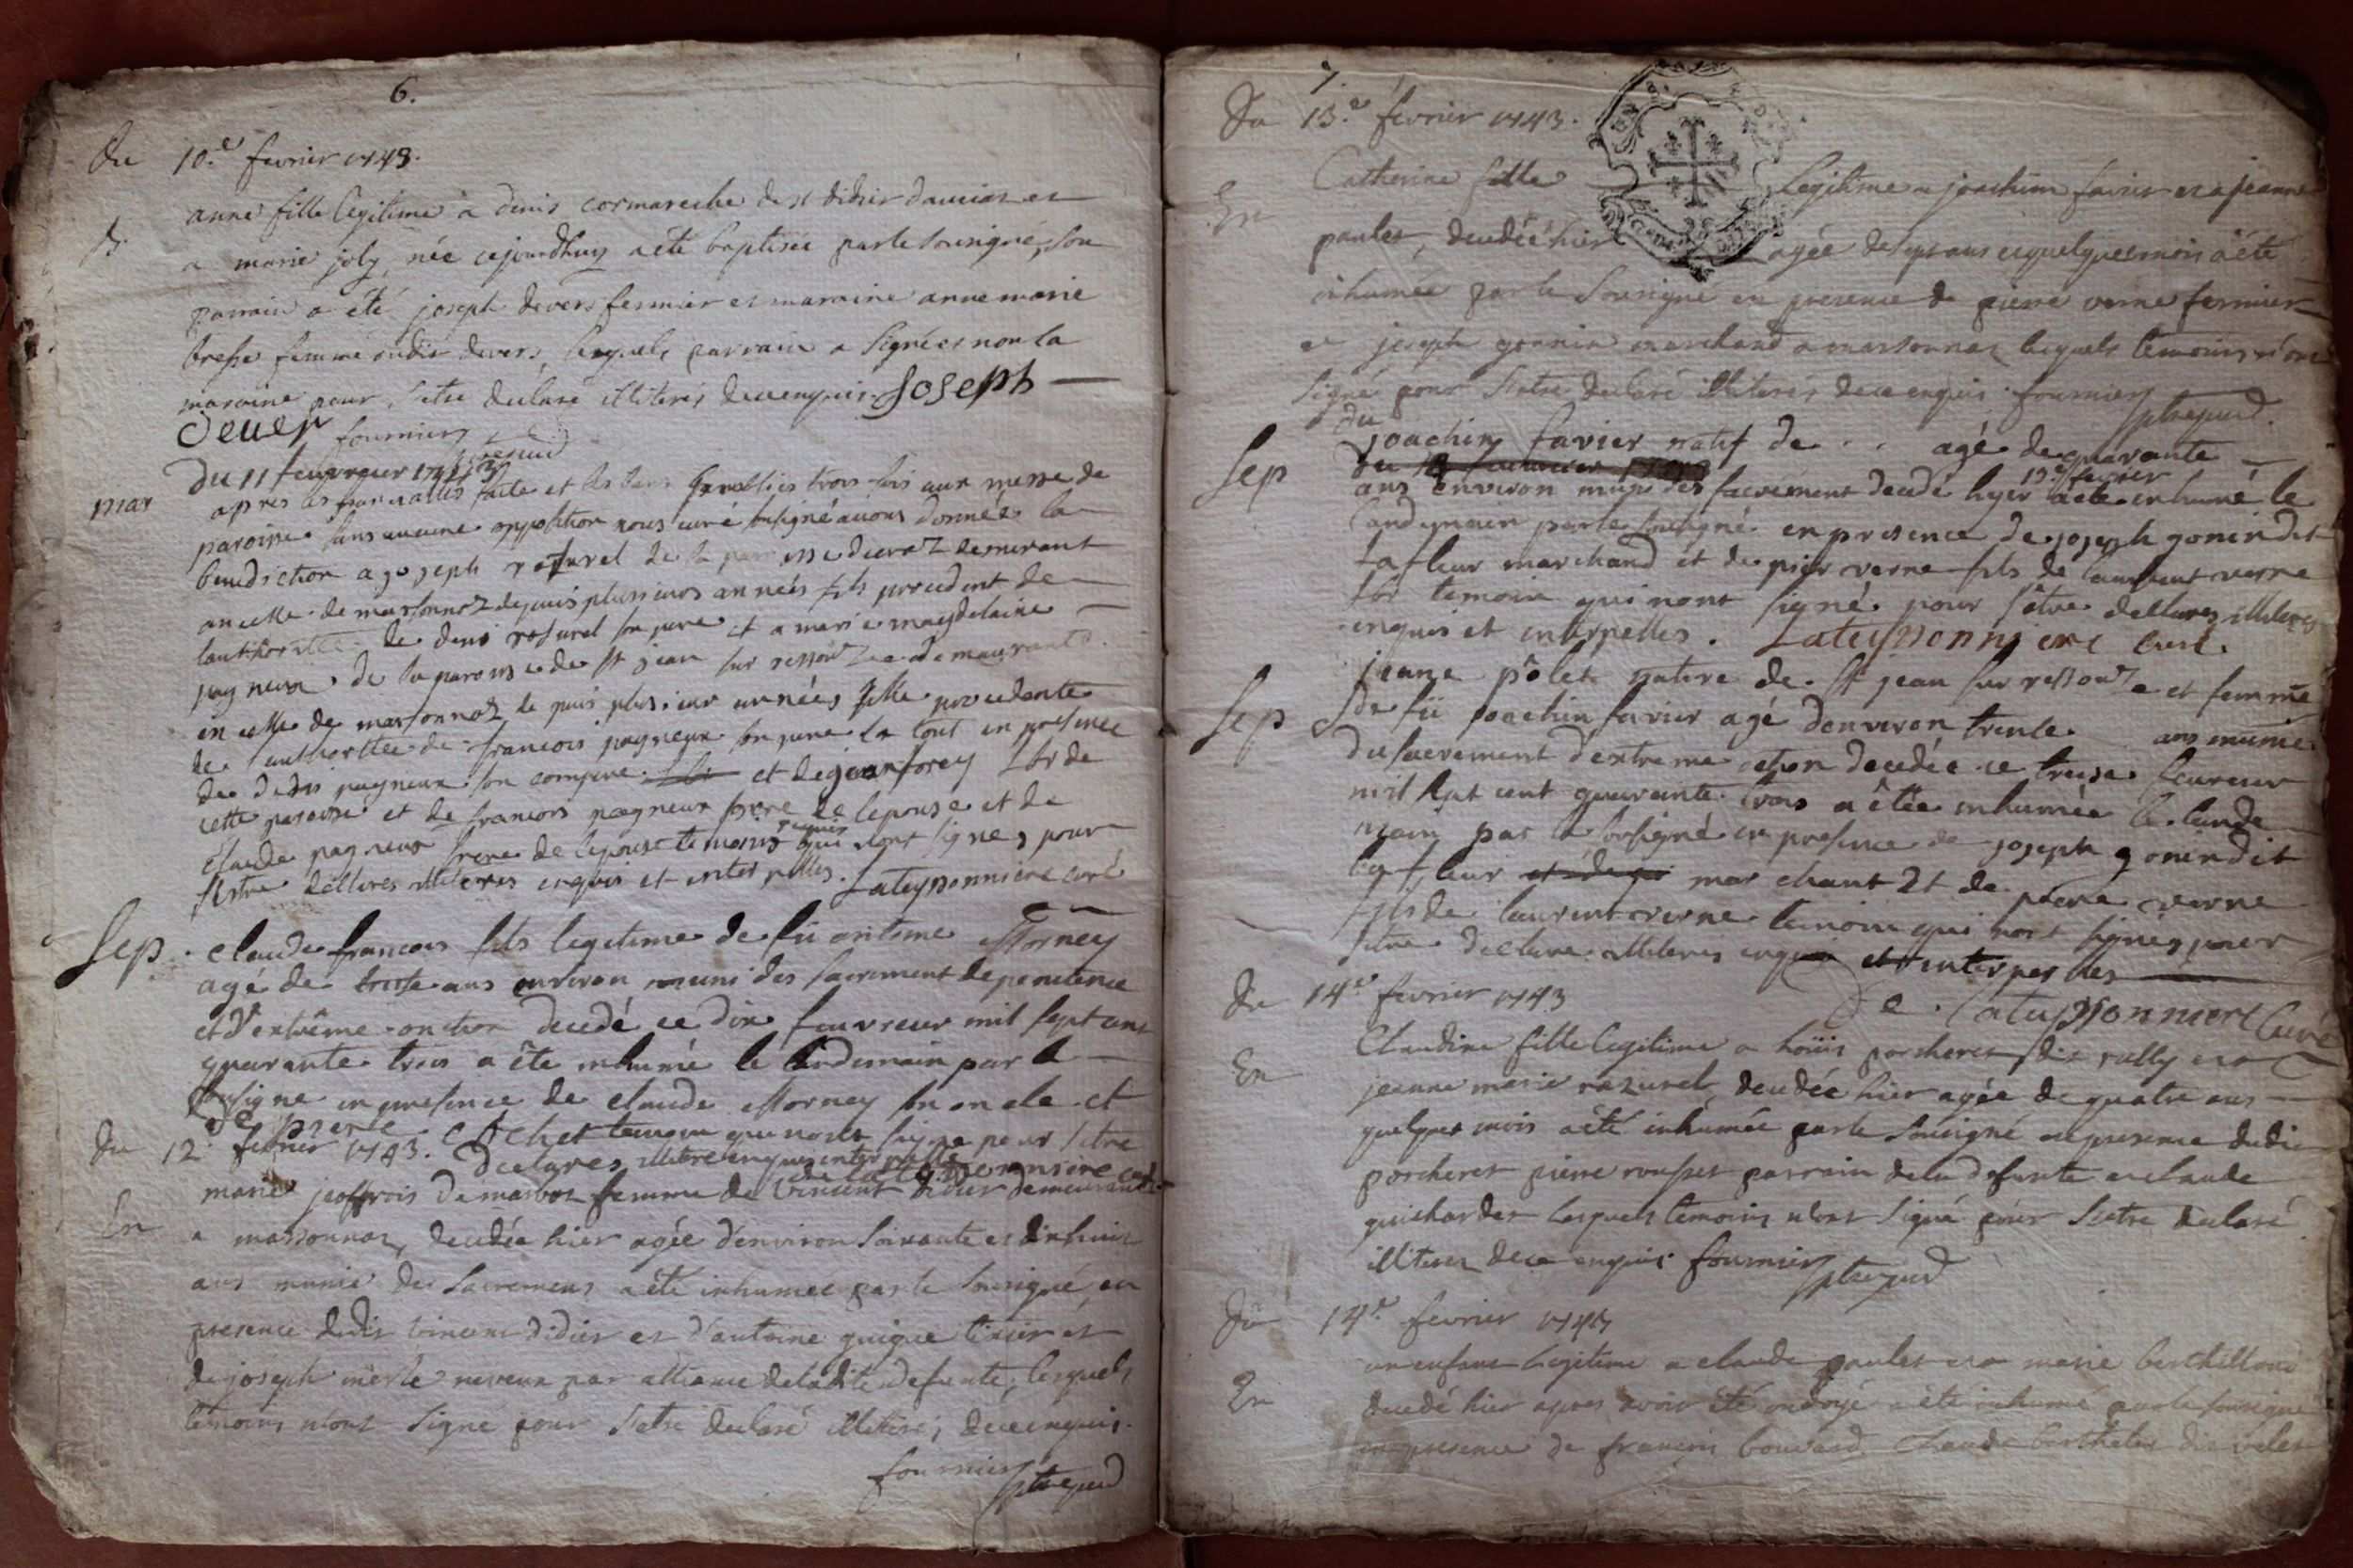 6.
Du 10.e fevrier 1743.
anne fille legitime a denis cormareche de st didier daussiat et
B. a marie joly, née cejourdhuy a été baptisée par le sousigné, son
parrain a été joseph devers fermier et maraine anne marie
femme dudit devers, lesquels parrain a signé et non la
maraine pour s'etre declaré illiterés de ce enquis. Joseph
Dever fournier
Du 11 feuvrier 1743
mar apres les fiancailles faite et les bans publies trois fois aux messe de
paroisse sans aucune opposition nous curé sousigné avons donnée la
benediction a joseph rasurel de la paroisse demeurant
en celle de marsonnaz depuis plusieurs années fils procedent de
lauthorittée de denis rasurel son pere et a marie magdelaine
pagneux de la paroisse de st jean sur ressouze demeurant
en celle de marsonnaz depuis plusieur années fille procedente
de lauthorittée de francois pagneux son pere le tout en presence
de denis pagneux son compere et de jean forey de
cette paroisse et de francois pagneux frere de lepouse et de
claude pagneux frere de lepouse temoins requis qui nont signés pour
s'estre dellares illiteres enquis et interpelles. Lateyssonniere curé
Sep. claude francois fils legitime de fü Morney
agé de ans environ muni des sacrement de penitence
et d'extrême onction decedé ce dix feuvreur mil sept cent
quarante trois a éte inhumé le lendemain par le
sousigne en presence de claude Morney son oncle et
de pierre temoin qui nont signe pour s'etre
Du 12. fevrier 1743. declares illitere enquis interpelle
marie jeoffrois de marboz femme de vincent didier demeurant
En a marsonnaz, decedée hier agée d'environ soixante et dix huit
ans munie des sacremens a été inhumée par le sousigné, en
presence dudit vincent didier et d'antoine guigue tixier et
de joseph merle neveux par alliance de ladite defunte, lesquels
temoins n'ont signé pour s'etre declaré illiterés, de ce enquis.
fournier
7.
Du 13.e fevrier 1743.
Catherine fille legitime a joachim favier et a jeanne
En paulet, decedée hier agée de sept ans et quelques mois a été
inhumée par le sousigné en presence de pierre verne fermier
et joseph gonnin marchand a marsonnaz lesquels temoins n'ont
signé pour s'etre declaré illiterés de ce enquis. fournier
du
Sep joachin favier natif de . . agé de quarante
13.e fevrier
ans environ muni des sacrement decedé hyer a éte inhumé le
landemain par le sousigné en presence de joseph gonin dit
lafleur marchand et de pier verne fils de laurent verne
temoin qui nont signé pour s'être dellares illiteres
enquis et interpelles. Lateyssonniere curé.
jeane pôlet native de st jean sur ressouze et femme
Sep de fü joachin favier agé d'environ trente ans munie
du sacrement d'extreme ontion decedée ce treize feuvreur
mil sept cent quarante trois a étée inhumée le lande
main par le sousigné en presence de joseph gonin dit
lafleur marchant et de pierre verne
fils de laurent verne temoin qui nont signés pour
s'etre declare illiteres enquis et interpelles
De Lateyssonniere Curé
Du 14.e fevrier 1743
Claudine fille legitime a loüis porcheret dit rally et a
En jeanne marie razurel, decedée hier agée de quatre ans
quelques mois a été inhumée par le sousigné en presence dudit
porcheret pierre rousset parrain de la defunte et claude
guichardet lesquels temoins n'ont signé pour s'etre declaré
illiterés de ce enquis. fournier
Du 14.e fevrier 1743
un enfant legitime a claude paulet et a marie berthilloud
En decedé hier apres avoir été ondoyé a été inhumé par le sousigné
en presence de francois bouvard claude berthelet dit velet